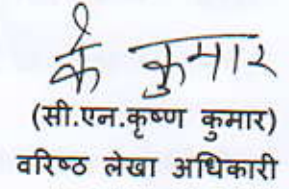 कै कुमार
(सी.एन.कृष्ण कुमार)
वरिष्ठ लेखा अधिकारी